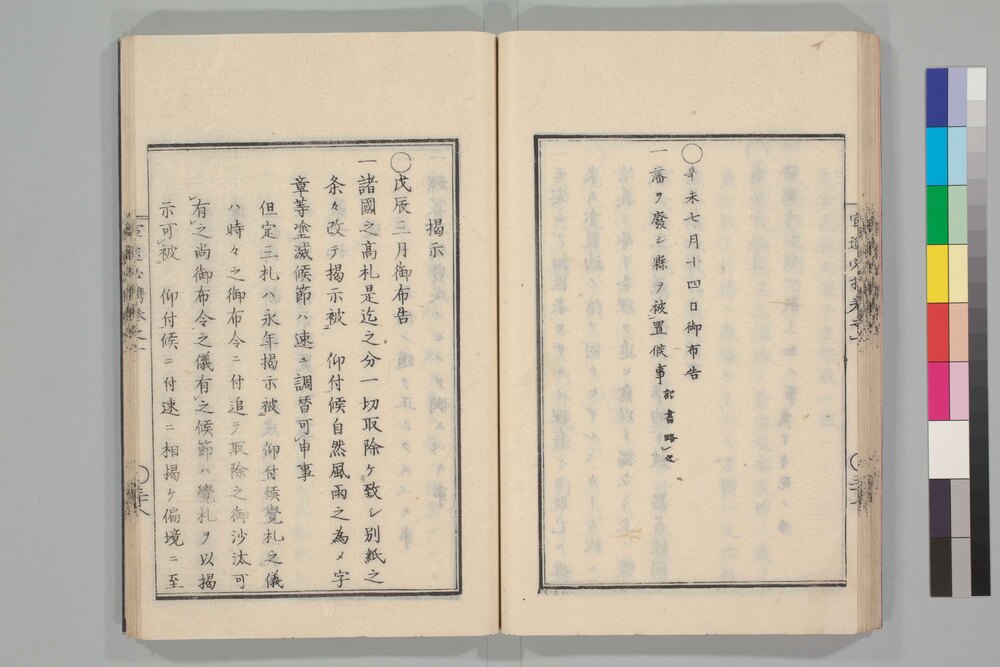 ◯辛未七月十四日御布告
一藩ヲ廢シ縣ヲ被レ置候事 詔書略レ之
掲示
◯戊辰三月御布告
一諸國之高札是迄之分一切取除ケ致シ別紙之
条々改テ掲示被 仰付候自然風雨之為メ字
章等塗滅候節ハ速ニ調替可レ申事
但定三札ハ永年掲示被 仰付候覺札之儀
ハ時々之御布令ニ付追テ取除之御沙汰可
有レ之尚御布令之儀有レ之候節ハ覺札ヲ以掲
示可レ被 仰付候ニ付速ニ相掲ケ偏境ニ至